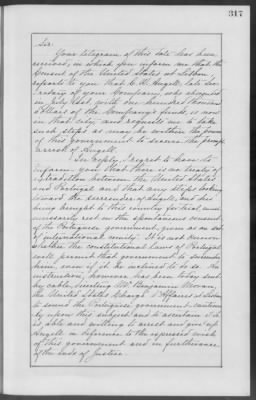 317
Sir:
Your telegram of this date has been
received, in which you inform me that the
Consul of the United States at Lisbon,
reports to you that C. W. Angell, late Sec-
retary of your Company, who absconded
in July last, with one hundred thousand
dollars of the Company's funds, is now
in that city, and requests me to take
such steps as may be within the power
of this government to secure the prompt
arrest of Angell.
In reply, I regret to have to
inform you that there is no treaty of
extradition between the United States
and Portugal and that any steps looking
toward the surrender of Angell, and his
being brought to this country for trial must
necessarily rest in the spontaneous consent
of the Portuguese government, given as an act
of international comity. It is not known
whether the constitutional laws of Portugal
will permit that government to surrender
him, even if it be inclined to do so. An
instruction, however, has been today sent
by cable, directing Mr. Benjamin Moran,
the United States Chargé d'Affaires at Lisbon
to sound the Portuguese government cautious-
ly upon this subject and to ascertain if it
is able and willing to arrest and give up
Angell in deference to the expressed wish
of this government and in furtherance
of the ends of Justice.